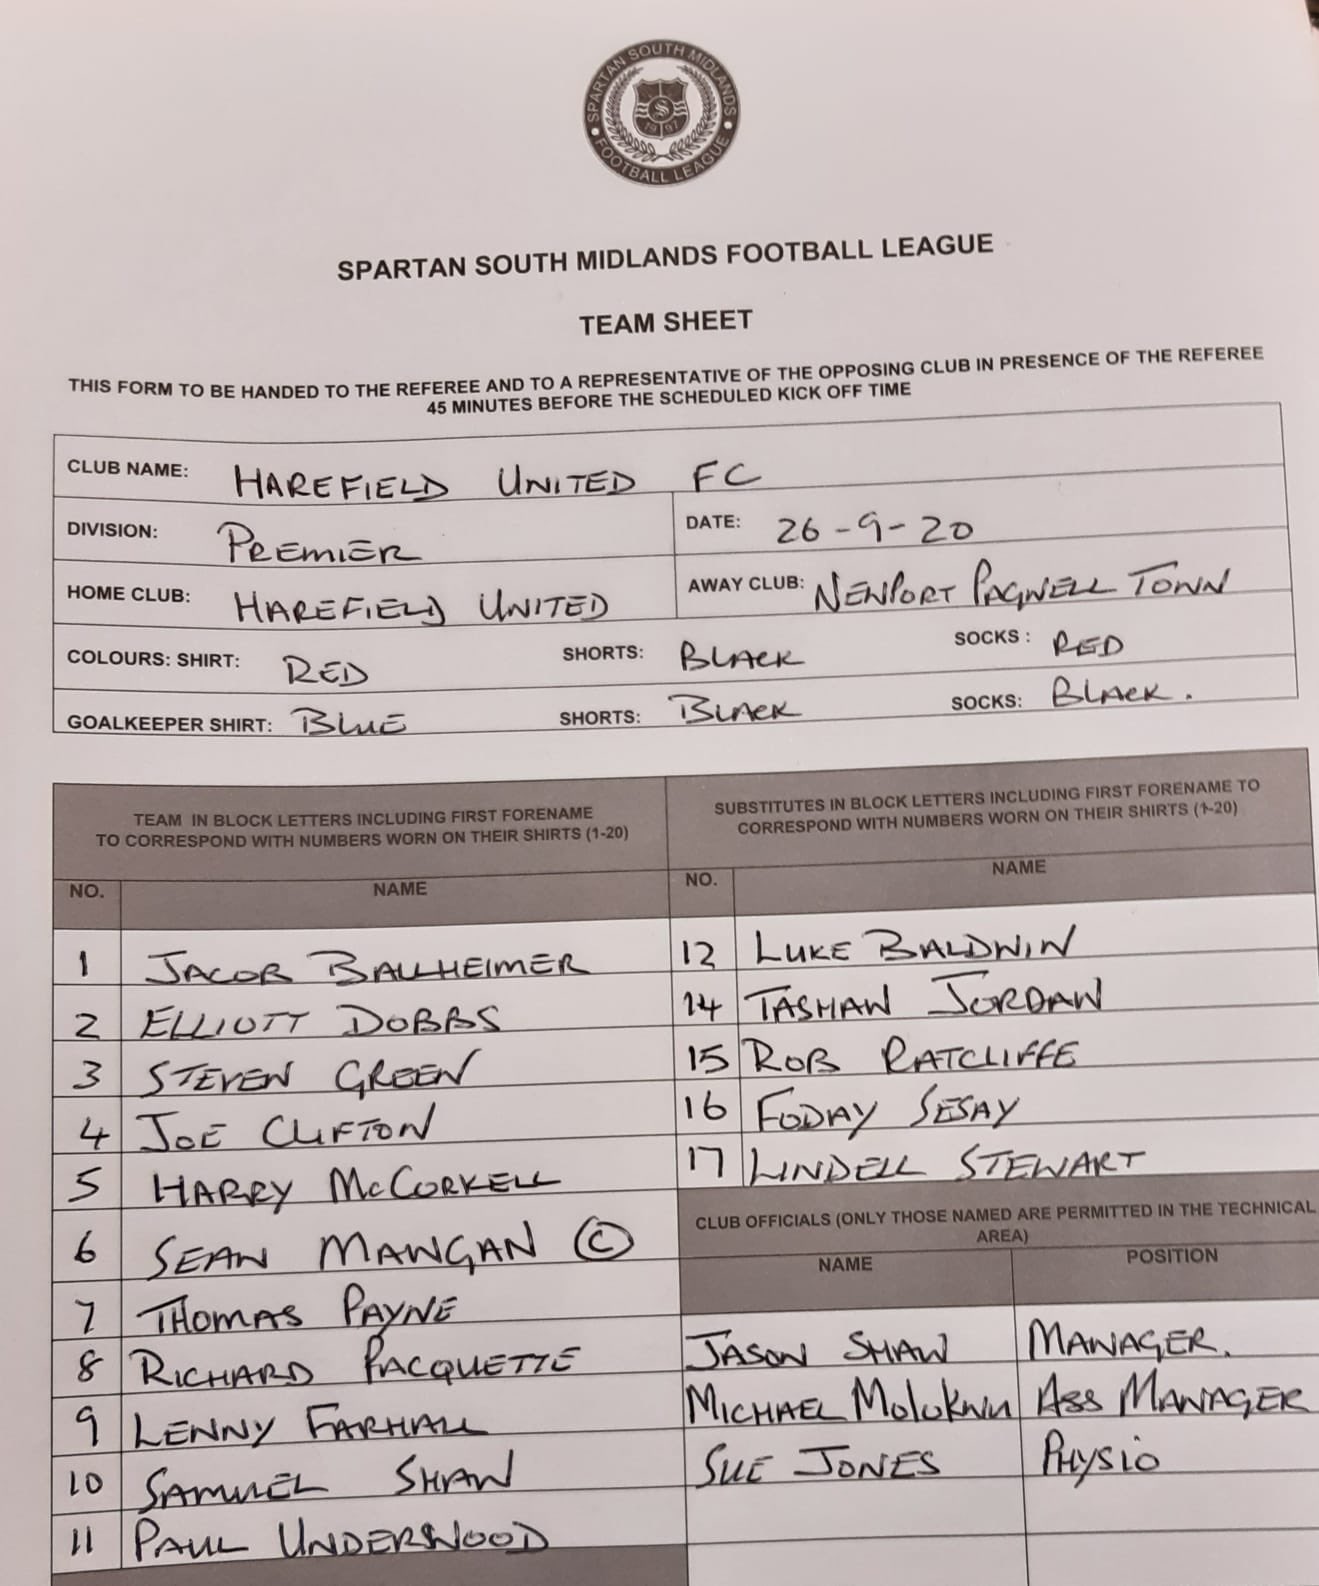 SPARTAN SOUTH MIDLANDS
FOOTBALL LEAGUE
S
1997
SPARTAN SOUTH MIDLANDS FOOTBALL LEAGUE
TEAM SHEET
THIS FORM TO BE HANDED TO THE REFEREE AND TO A REPRESENTATIVE OF THE OPPOSING CLUB IN PRESENCE OF THE REFEREE
45 MINUTES BEFORE THE SCHEDULED KICK OFF TIME
CLUB NAME: HAREFIELD UNITED FC
DIVISION: PREMIER DATE: 26-9-20
HOME CLUB: HAREFIELD UNITED AWAY CLUB: NEWPORT PAGNELL TOWN
COLOURS: SHIRT: RED SHORTS: BLACK SOCKS : RED
GOALKEEPER SHIRT: BLUE SHORTS: BLACK SOCKS: BLACK.
TEAM IN BLOCK LETTERS INCLUDING FIRST FORENAME
TO CORRESPOND WITH NUMBERS WORN ON THEIR SHIRTS (1-20)
NO. NAME
1 JACOB BALLHEIMER
2 ELLIOTT DOBBS
3 STEVEN GREEN
4 JOE CLIFTON
5 HARRY McCORKELL
6 SEAN MANGAN ©
7 THOMAS PAYNE
8 RICHARD PACQUETTE
9 LENNY FARHALL
10 SAMUEL SHAW
11 PAUL UNDERWOOD
SUBSTITUTES IN BLOCK LETTERS INCLUDING FIRST FORENAME TO
CORRESPOND WITH NUMBERS WORN ON THEIR SHIRTS (1-20)
NO. NAME
12 LUKE BALDWIN
14 TASHAN JORDAN
15 ROB RATCLIFFE
16 FODAY SESAY
17 LINDELL STEWART
CLUB OFFICIALS (ONLY THOSE NAMED ARE PERMITTED IN THE TECHNICAL
AREA)
NAME POSITION
JASON SHAW MANAGER.
MICHAEL MOLOKWU ASS MANAGER
SUE JONES PHYSIO